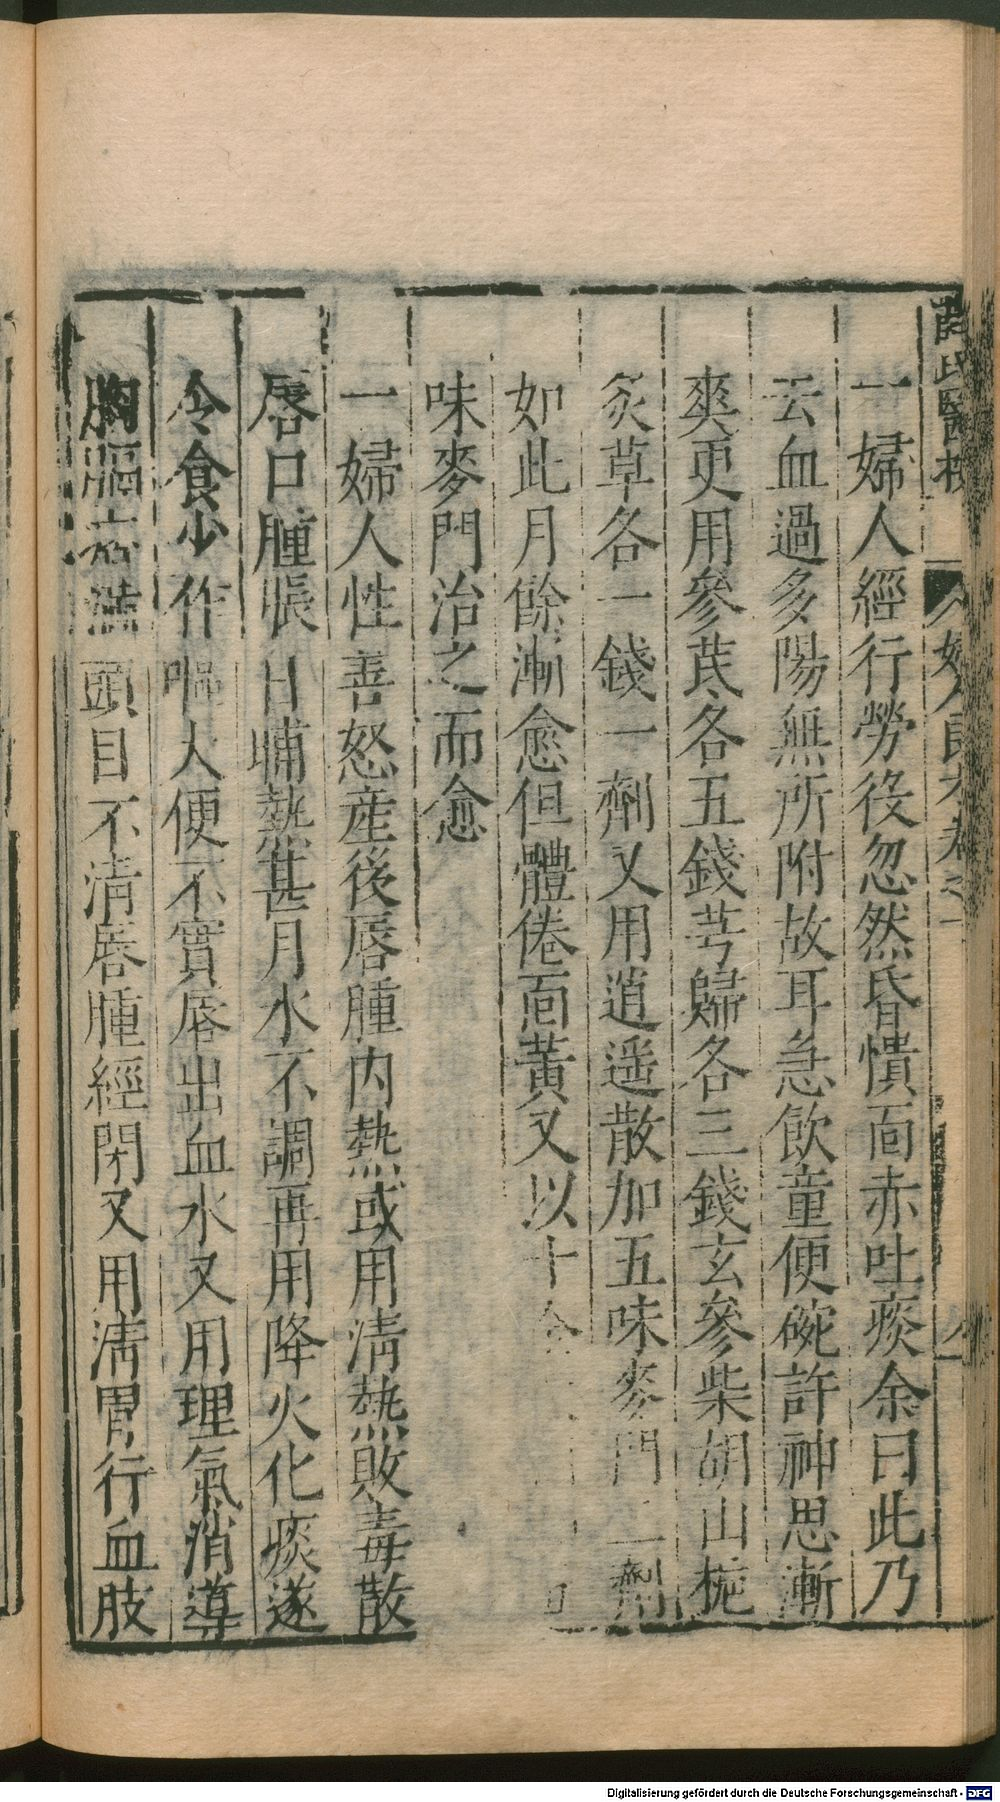 薛氏醫按
婦人良方卷之一
一婦人經行勞役忽然昏憒面赤吐痰余曰此乃
去血過多陽無所附故耳急飲童便碗許神思漸
爽更用參芪各五錢芎歸各三錢玄參柴胡山梔
炙草各一錢一劑又用逍遥散加五味麥門二劑
如此月餘漸愈但體倦面黃又以十全
味麥門治之而愈
一婦人性善怒産後唇腫内熱或用清熱敗毒散
唇口腫脹日晡熱甚月水不調再用降火化痰遂
冷食少作嘔大便不實唇出血水又用理氣消導
胸膈痞滿頭目不清唇腫經閉又用清胃行血肢
Digitalisierung gefördert durch die Deutsche Forschungsgemeinschaft - DFG